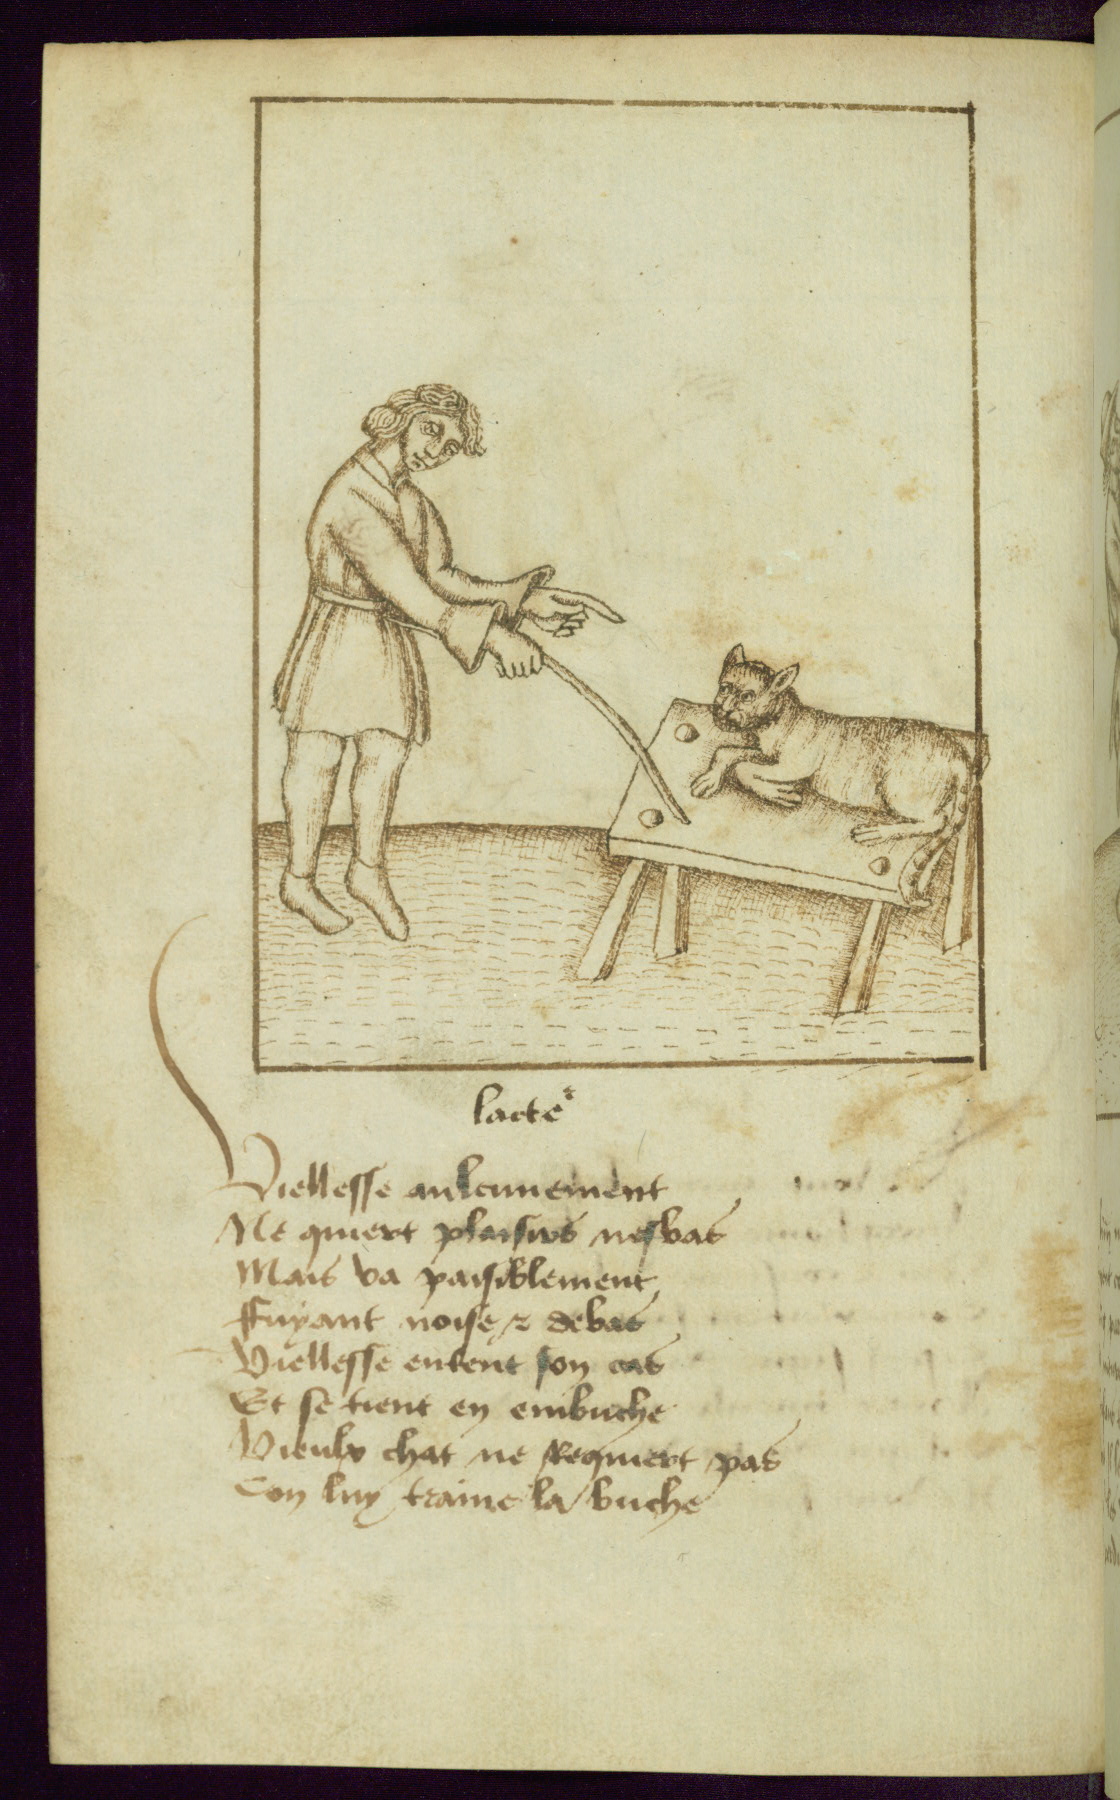 lacteʳ
Viellesse aulcunement
Ne quiert plaisirs nesbas
Mais va paisiblement
Ffuyant noise ⁊ debas
Viellesse entent son cas
Et se tient en embuche
Vieulx chat ne Requiert pas
Con luy traine la buche